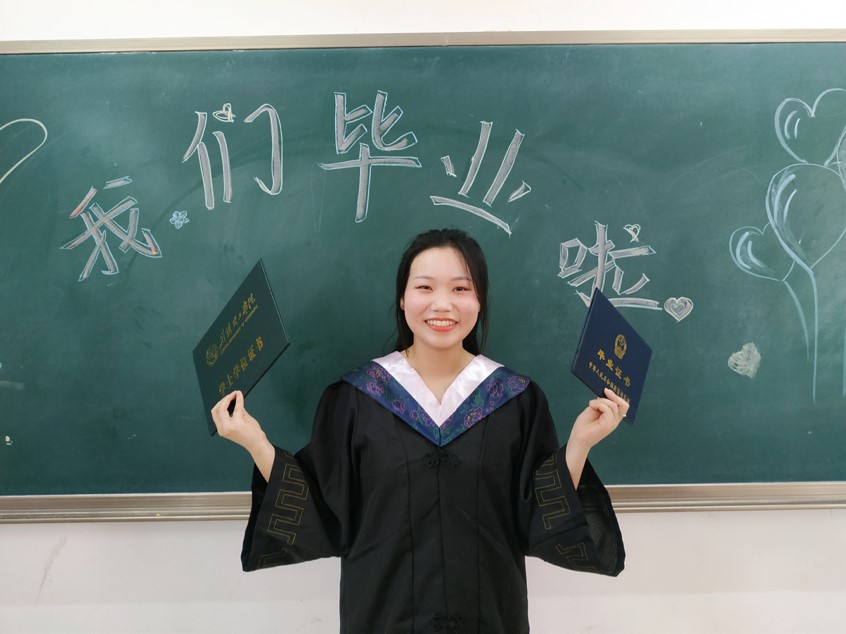 我们毕业啦
学士学位证书
毕业证书